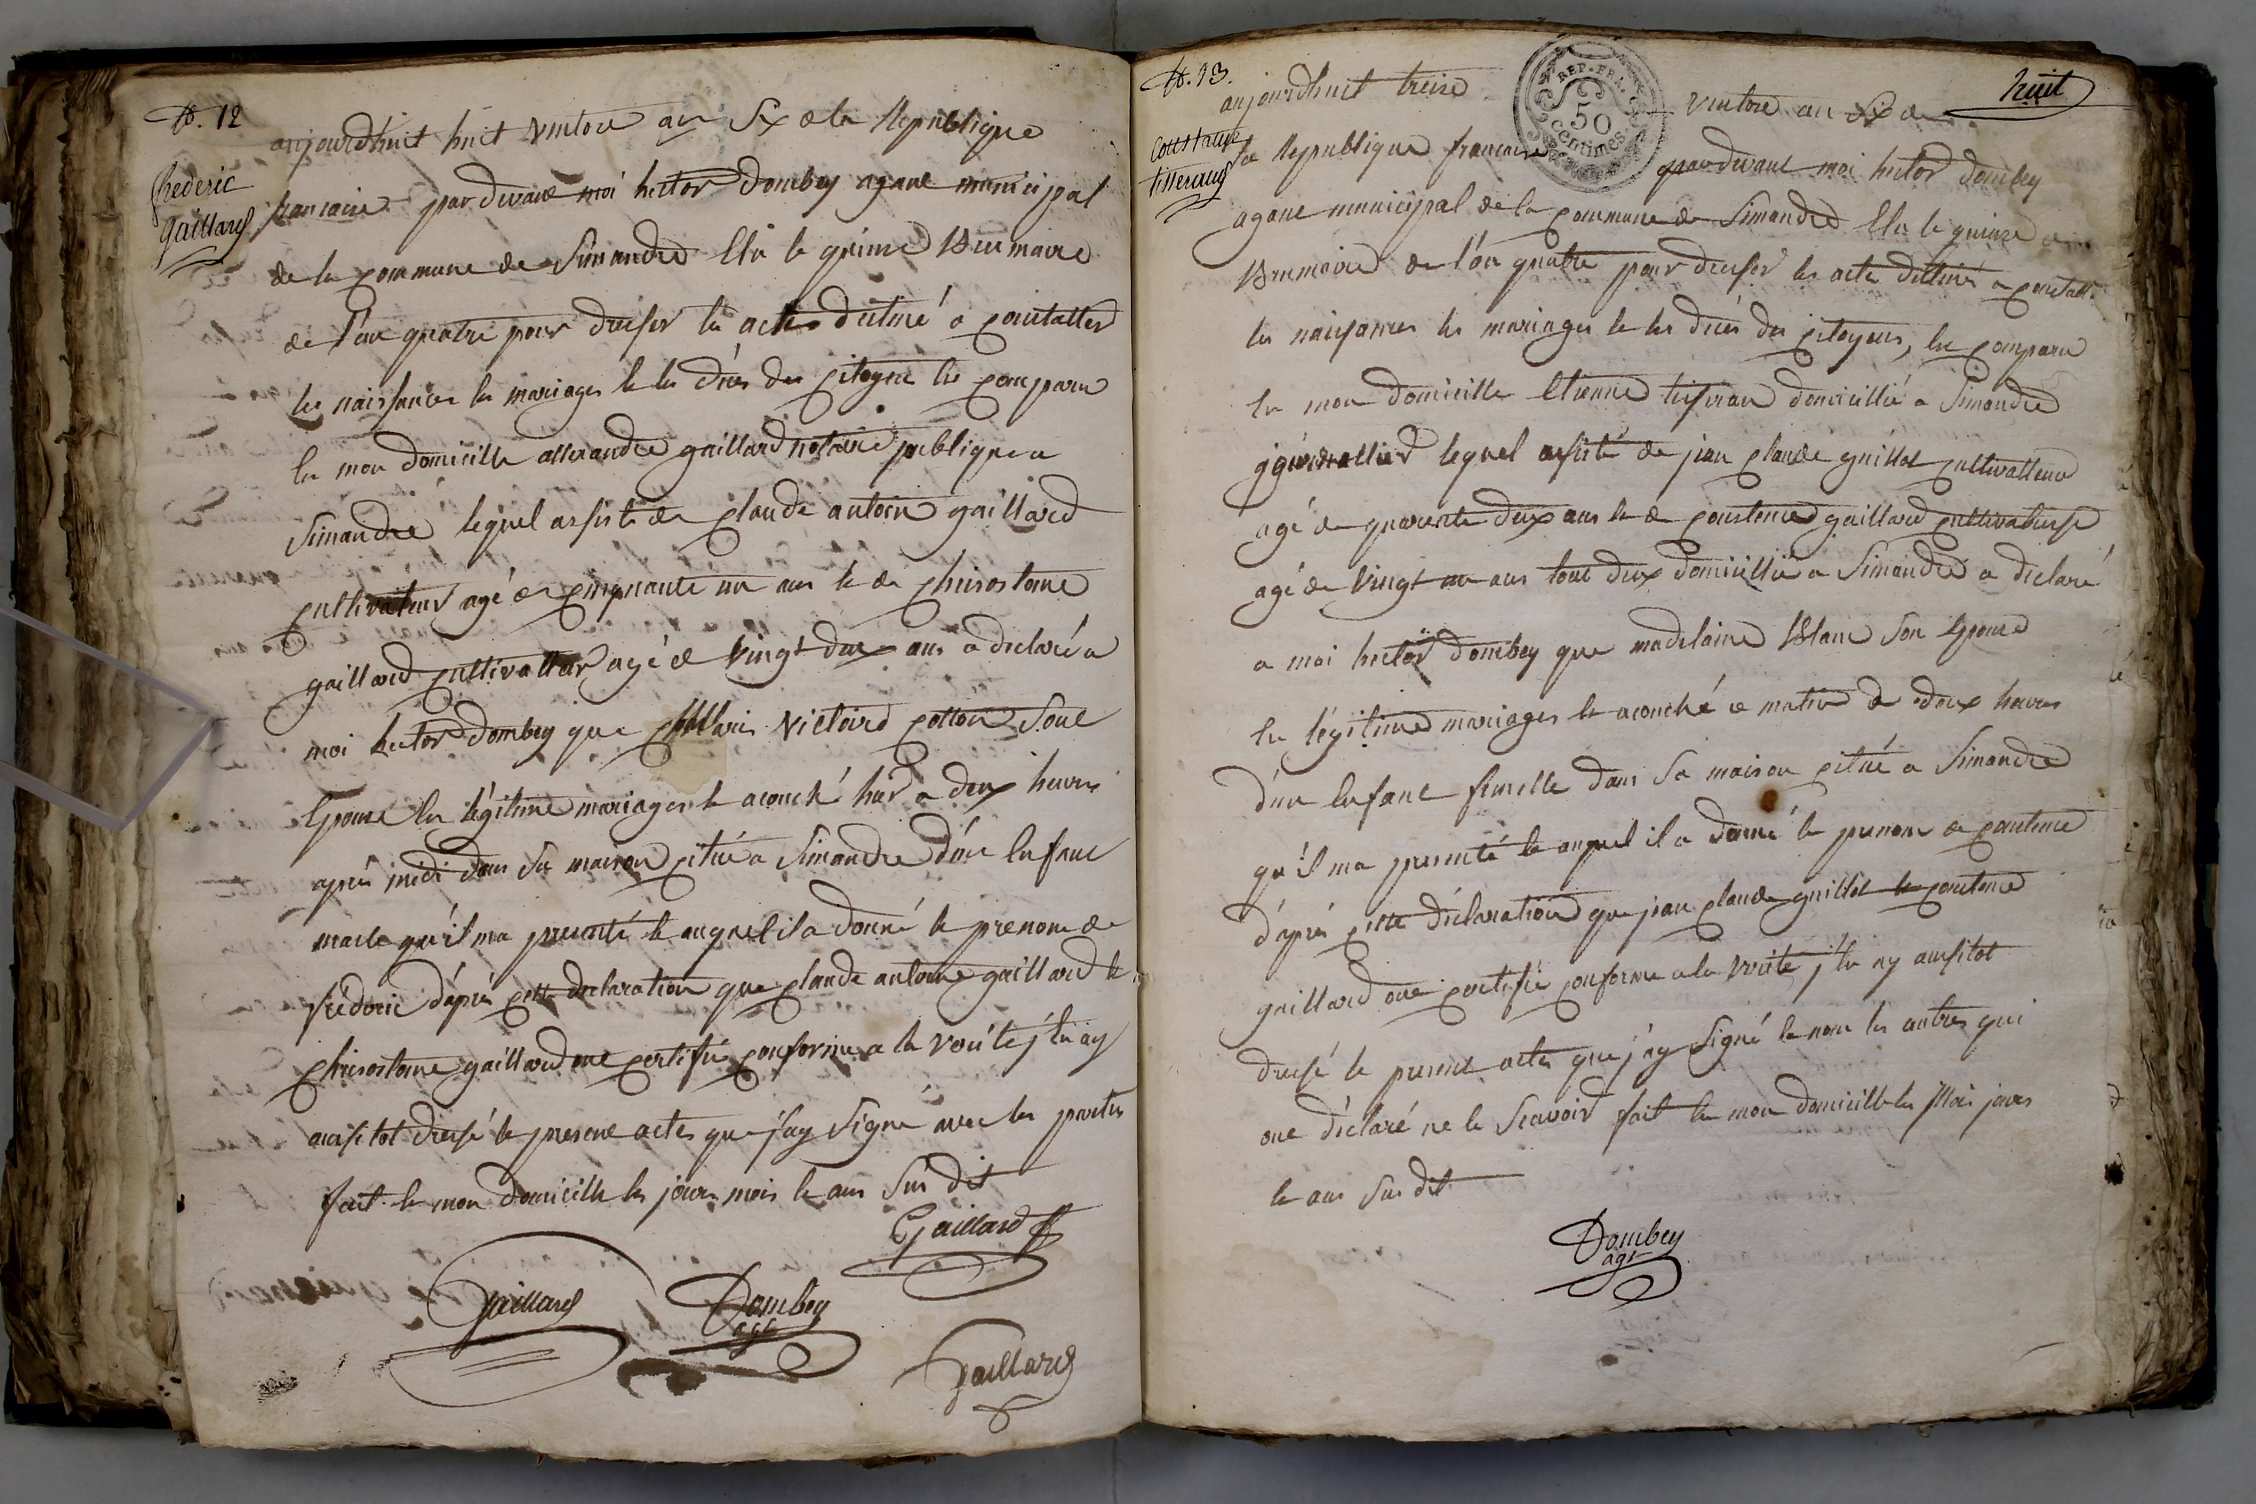 N. 12
frederic
gaillard
aujourdhuit huit Ventose an Six de la Republique
francaise par devant moi hector Dombey agant municipal
de la commune de Simandre Elu le quinze Brumaire
de l'an quatre pour dresser les actes destiné a constatter
les naissances les mariages et les déces des citoyens Est comparu
En mon domicille allexandre gaillard notaire publique a
Simandre lequel assisté de claude antoine gaillard
cultivateur agé de cinquante un ans et de chrisostome
gaillard cultivatteur agé de vingt deux ans a declaré a
moi hector Dombey que Marie Victoire cotton Sont
Epouse En légitime mariages et acouché hier a deux heures
après midi dans sa maison citué a Simandre d'un Enfant
macle qu'il ma presenté et auquel il a donné le prenom de
frederic d'après cette declaration que claude antoine gaillard et
chrisostome gaillard ont certifié conforme a la vérité j'En ay
aussitot dressé le present actes que j'ay Signé avec les parties
fait En mon domicille les jours mois et ans Sus dit
Gaillard
Gaillard
Dombey
agt
Gaillard
N. 13.
constance
tisserand
huit
REP. FRA.
50
centimes
aujourdhuit treize Ventose an Six de
la Republique francaise par devant moi hector Dombey
agant municipal de la commune de Simandre Elu le quinze
Brumaire de l'an quatre pour dresser les actes destinés a constatt.
les naissances les mariages et les déces des citoyens, Est comparu
En mon domicille Etienne tisseran domicillié a Simandre
lequel assisté de jean claude guillot cultivatteur
agé de quarente deux ans et de constence gaillard cultivateuse
agé de vingt un ans tout deux domicillié a Simandre a declaré
a moi hector Dombey que madelaine Blanc Son Epouse
En légitime mariages et acouché ce matin a deux heures
d'un Enfant femelle dans Sa maison citué a Simandre
qu'il ma presenté et auquel il a donné le prenom de constence
d'après cette déclaration que jean claude guillot et constence
gaillard ont certifié conforme a la vérité j'En ay aussitot
dressé le present actes que j'ay Signé et non les autres qui
ont déclaré ne le Scavoir fait En mon domicille les Mois jours
et ans Sus dit
Dombey
agt